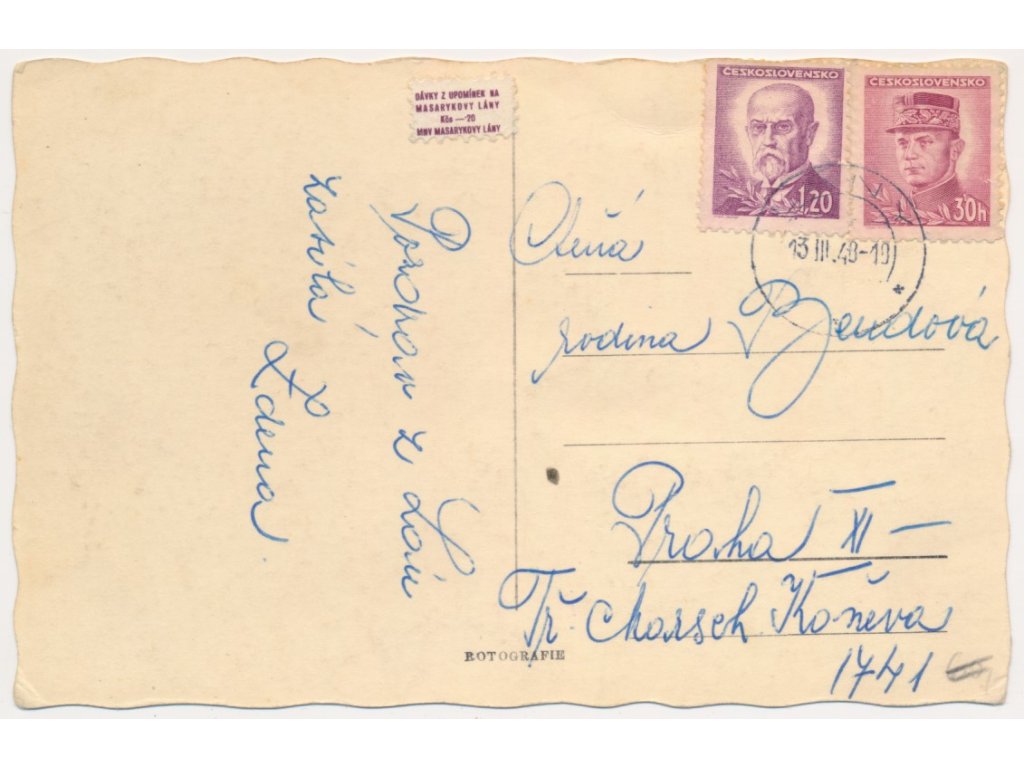 DÁVKY Z UPOMÍNEK NA
MASARYKOVY LÁNY
Kčs —·20
MNV MASARYKOVY LÁNY
ČESKOSLOVENSKO
1,20
ČESKOSLOVENSKO
30h
13 III.48-10
*
Pozdrav z Lán
zasílá
Zdena.
Ctěná
rodina Bendová
Praha XI —
Tř. Marsch. Koněva
1741
ROTOGRAFIE